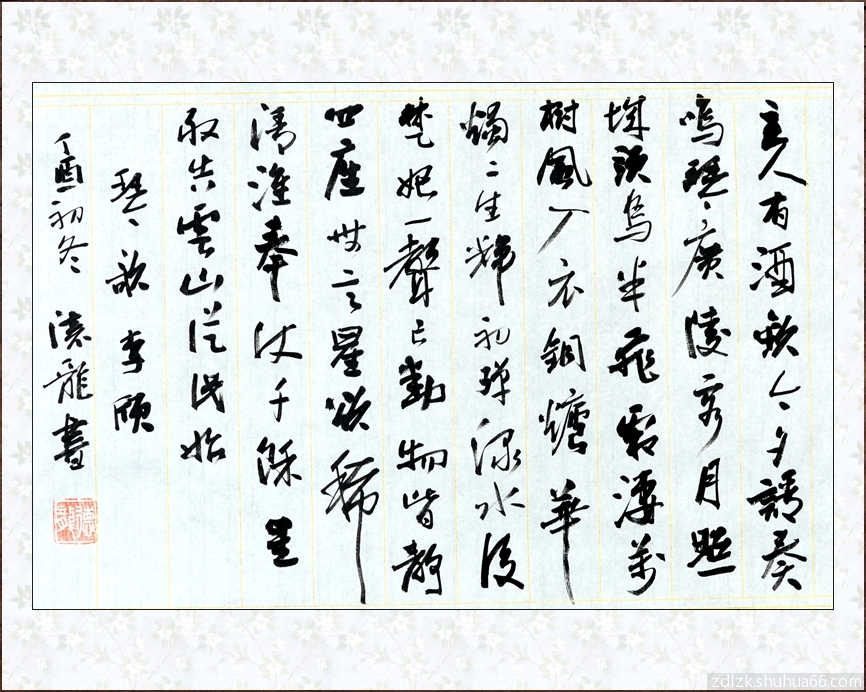 主人有酒歡今夕請奏
鳴琴廣陵客月照
城頭烏半飛霜淒萬
樹風入衣銅爐華
燭〻生輝初彈淥水後
楚妃一聲已動物皆靜
四座無言星欲稀
清淮奉使千餘里
敢告雲山從此始
琴歌 李頎
丁酉初冬 德龍書
zdlzk.shuhua66.com